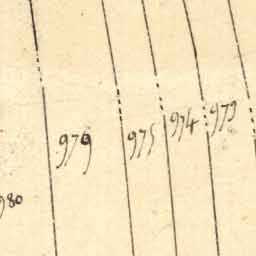 979
975
974
973
980